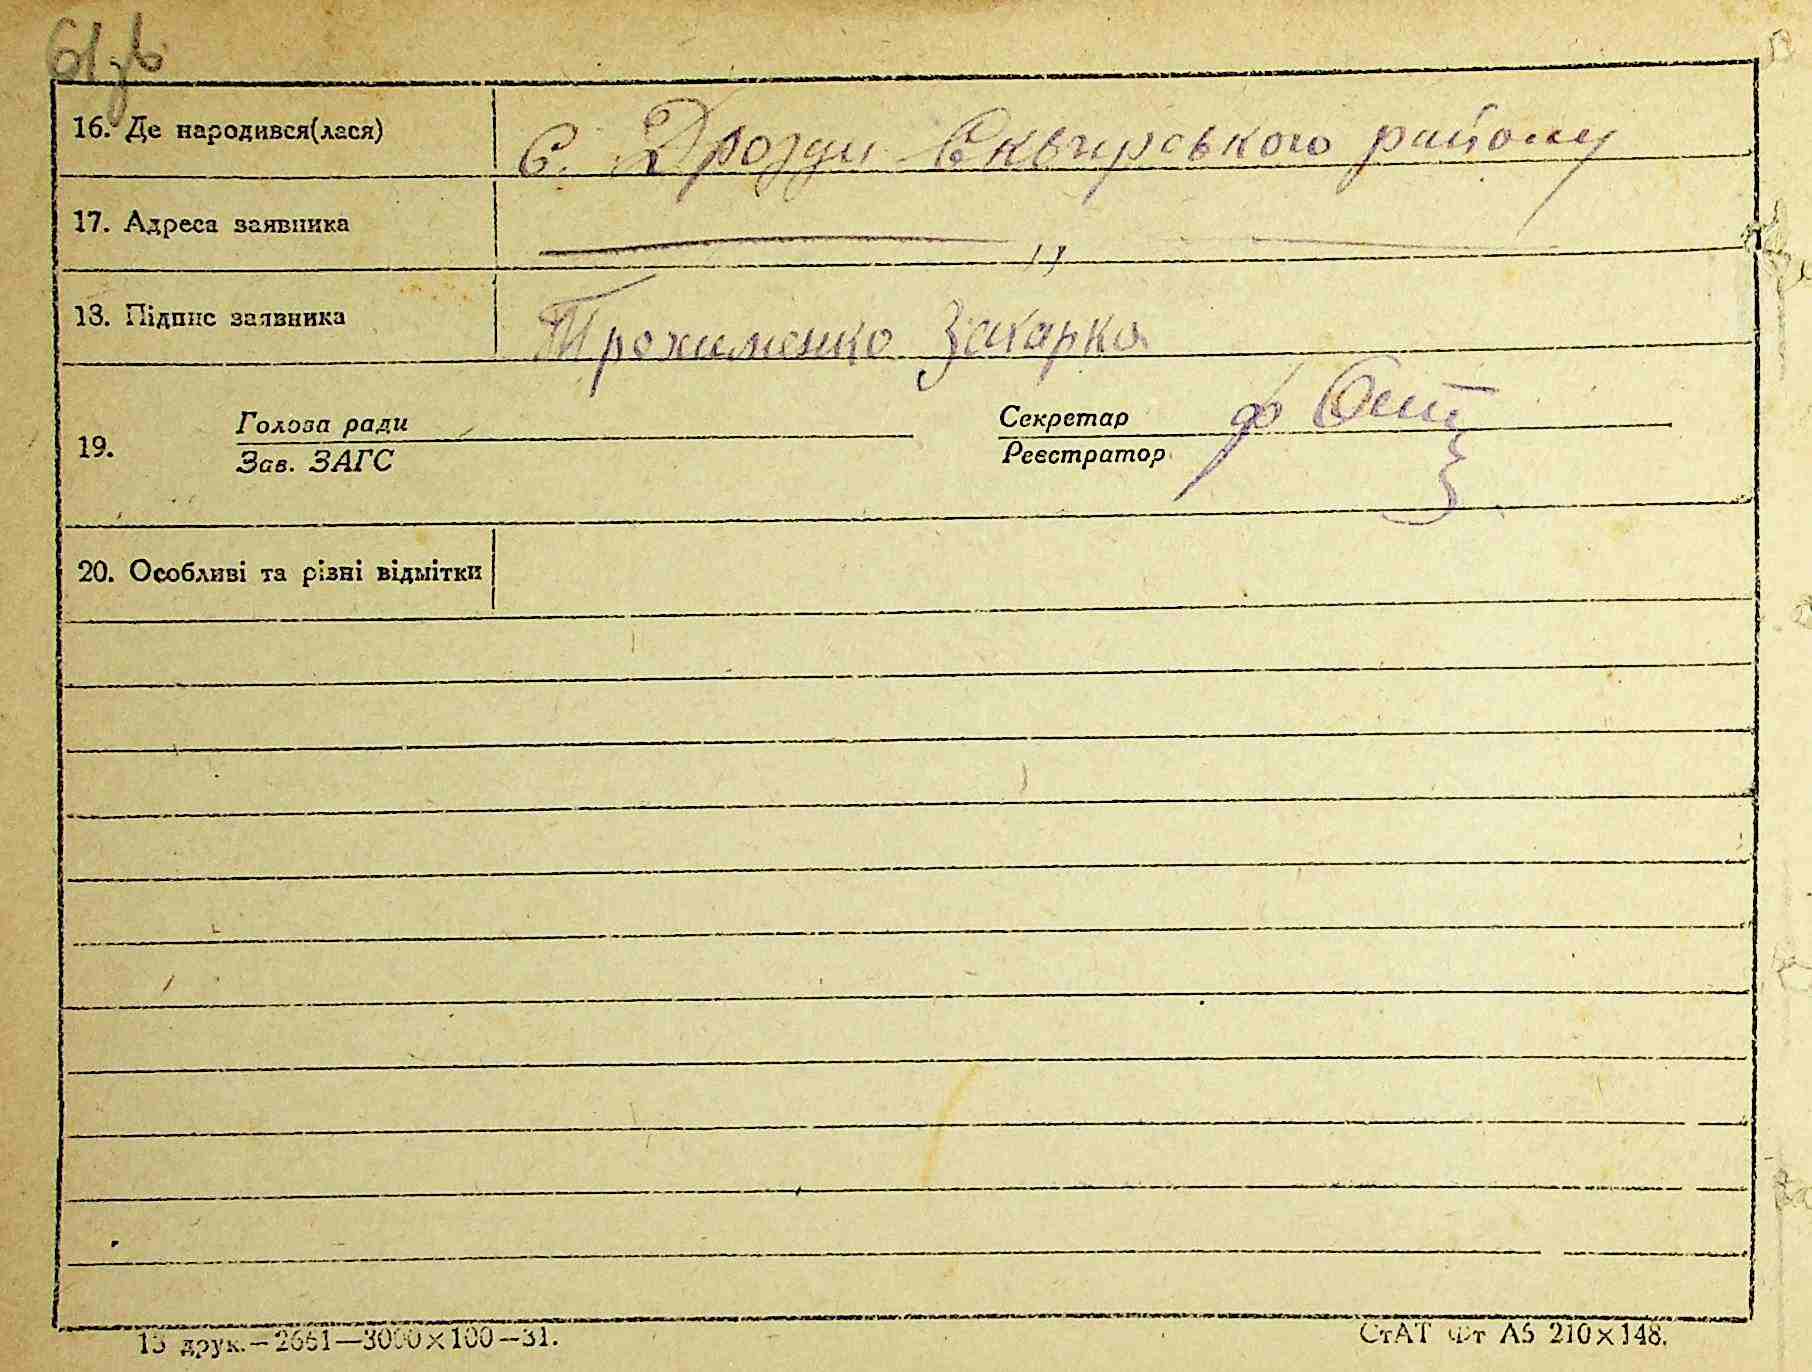 61зв
16. Де народився(лася) С. Дрозди Сквирського району
17. Адреса заявника — ,, —
18. Підпис заявника Трохименко Захарко
19. Голова ради Секретар
Зав. ЗАГС Реєстратор
20. Особливі та різні відмітки
13 друк.—2661—3000×100—31. СтАТ Фт А5 210×148.